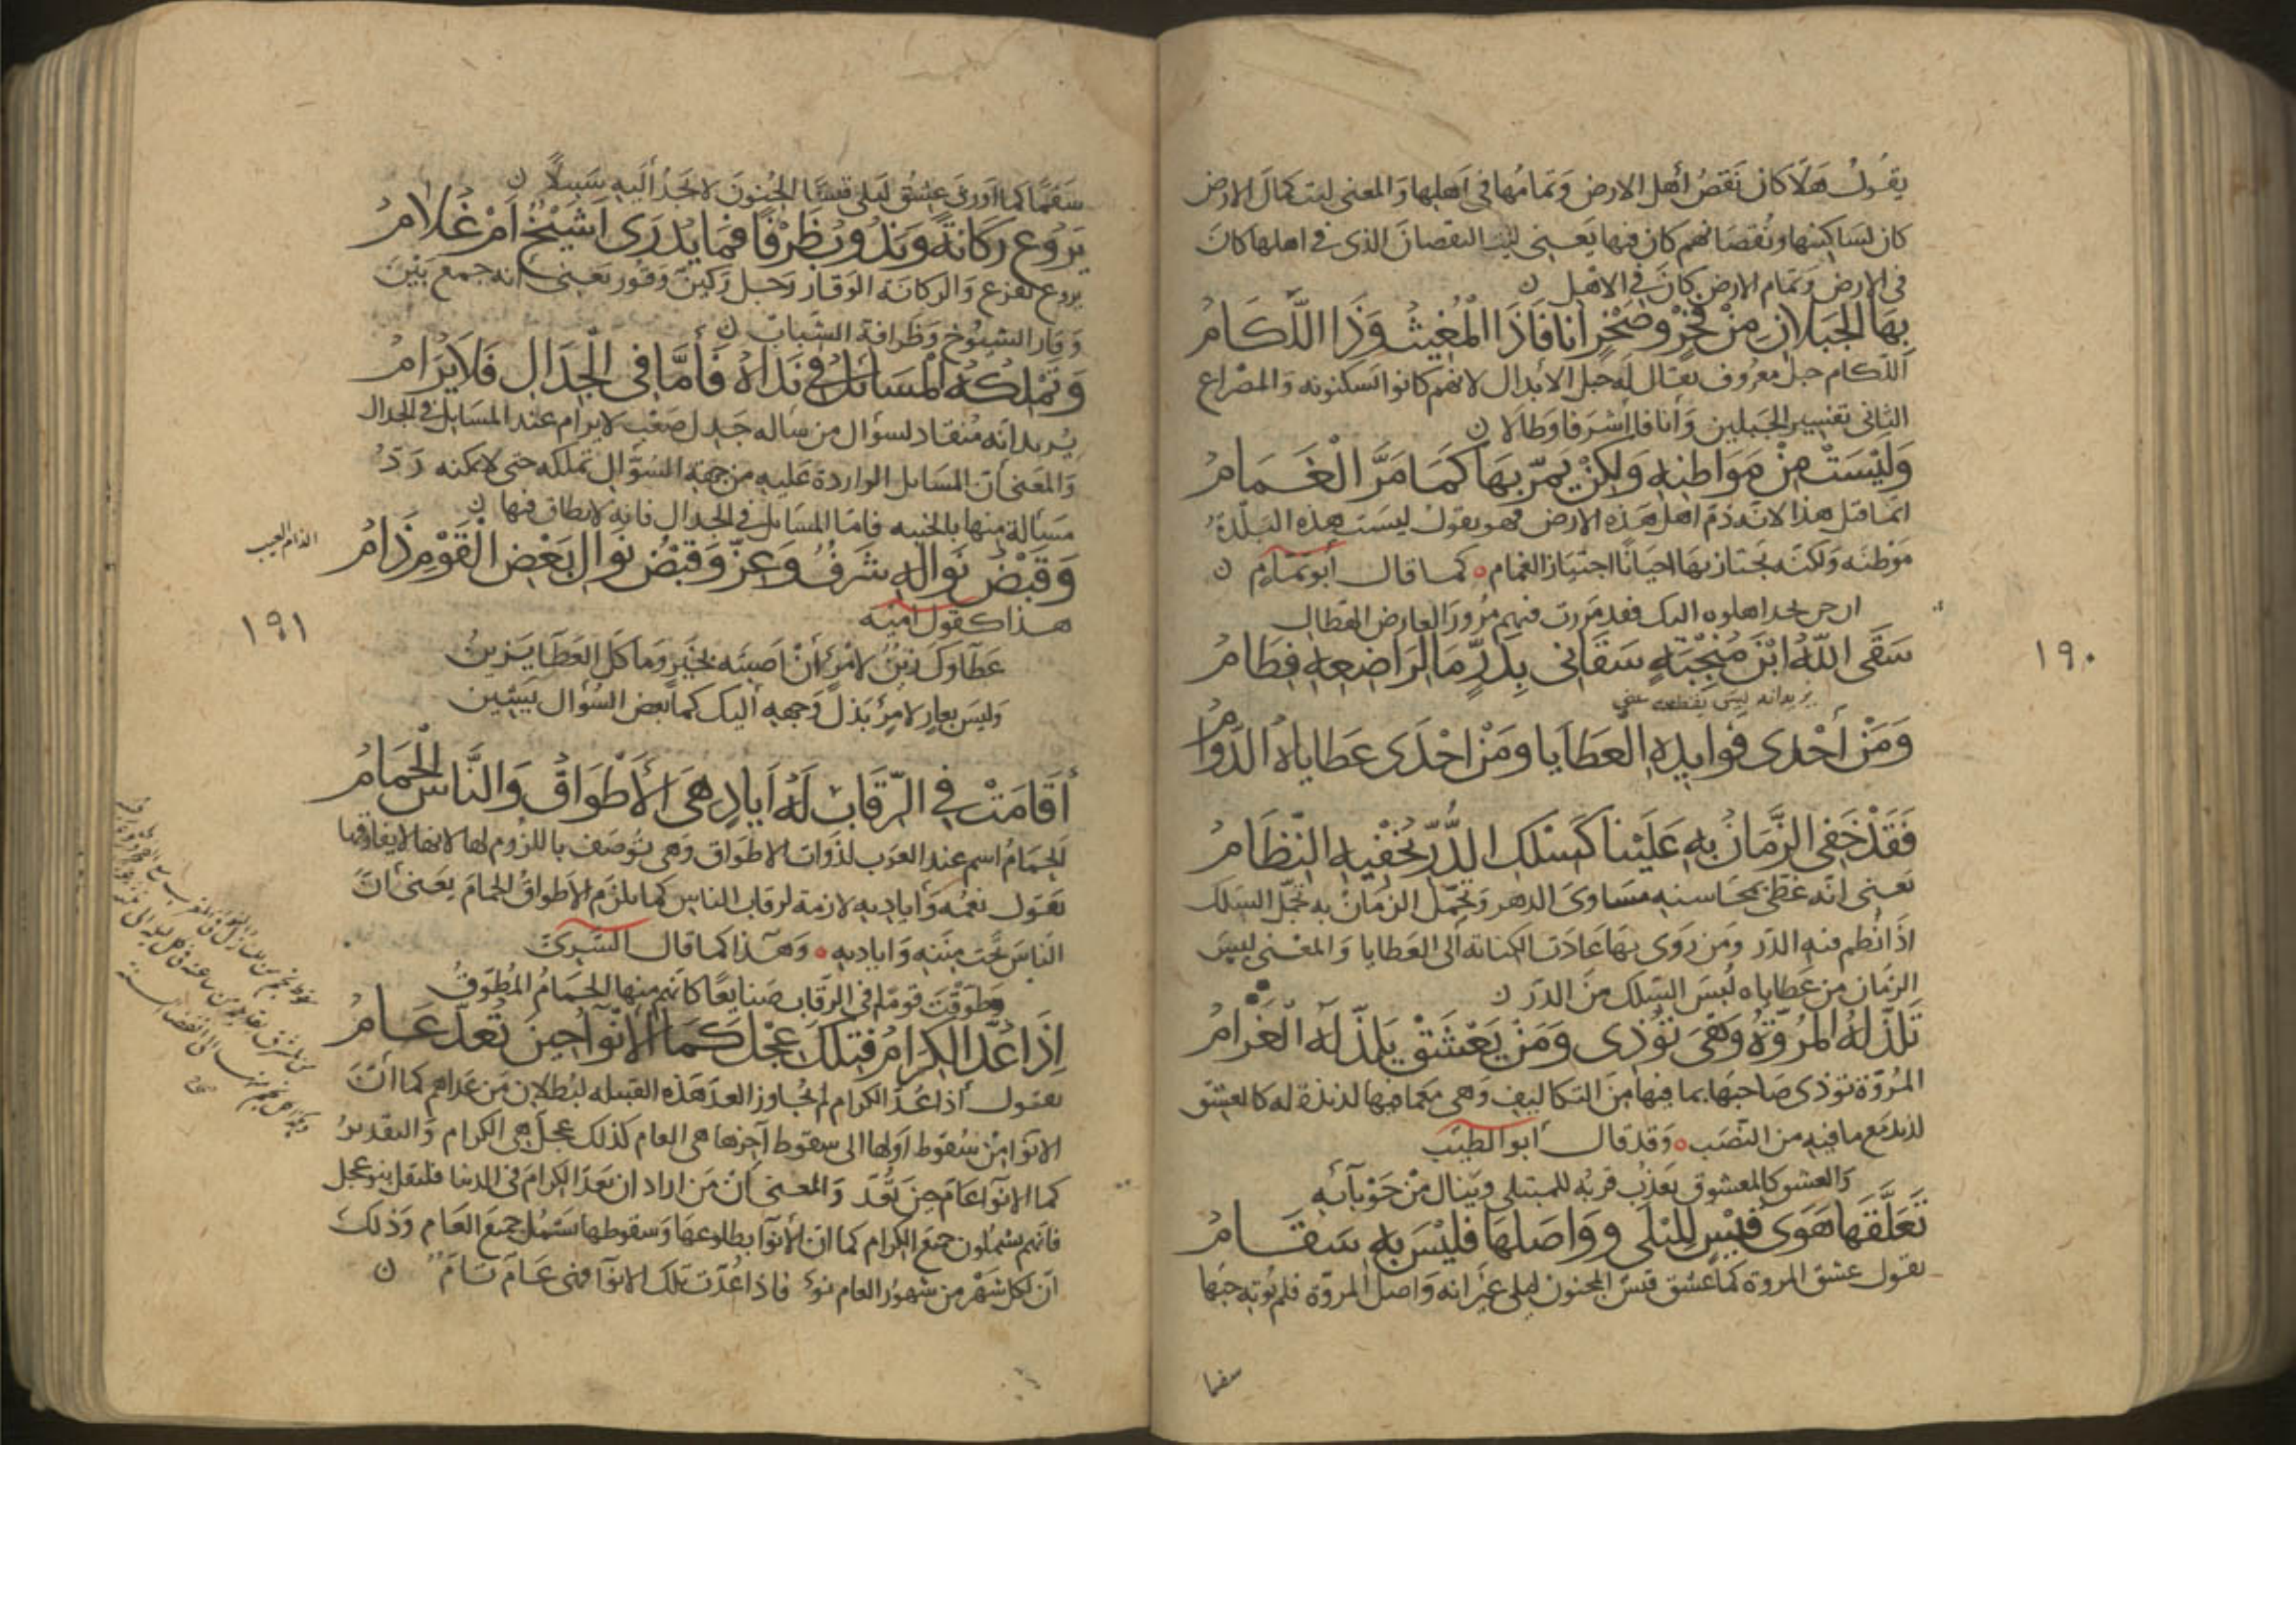 يقول هلا كان نقص أهل الارض وتمامها في اهلها والمعنى ليت كمال الارض
كان لساكنيها ونقصانهم كان فيها يعني ليت النقصان الذي في اهلها كان
في الارض وتمام الارض كان في الاهل ن
بِهَا الجَبَلانِ مِنْ فَخْرٍ وصَخْرٍ أنَافَا ذَا الْمُغِيثُ وَذَا اللُّكَامُ
اللكام جبل معروف يقال له جبل الابدال لانهم كانوا يسكنونه والمصراع
الثاني تفسير الجبلين وأنافا اشرفا وطالا ن
وَلَيْسَتْ مِنْ مَوَاطِنِهِ وَلكِنْ يَمُرّ بهَا كَمَا مَرَّ الْغَمَامُ
انما قال هذا لانه ذم اهل هذه الارض فهو يقول ليست هذه البلدة
موطنه ولكنه يجتاز بها احيانا اجتياز الغمام كما قال أبو تمام ن
فقد مررت فيهم مرور العارض الهطال
سَقَى اللّهُ ابْنَ مُنْجِبَةٍ سَقَانِي بِدَرٍّ مَا لِرَاضِعِهِ فِطَامُ
يريد انه ليس يقطعه عني
وَمَنْ أحْدَى فَوايدِهِ العَطَايا ومَنْ احْدَى عَطاياهُ الدَّوامُ
فَقَدْ خَفِي الزَّمَانُ بِهِ عَلَيْنا كَسْلَكِ الدُّرِّ يُخْفِيهِ النِّظَامُ
يعني انه غطى بمحاسنه مساوى الدهر وتجمل الزمان به تجمل السلك
اذا نظم فيه الدر ومن روى بها عادت الكناية الى العطايا والمعنى لبس
الزمان من عطاياه لبس السلك من الدر ن
تَلَذُّ لَهُ المُرُوَّةُ وَهْيَ تُوذِى وَمَنْ يَعْشَقْ يَلَذُّ لَهُ الغَرامُ
المروة توذى صاحبها بما فيها من التكاليف وهى مع ما فيها لذيذة له كالعشق
لذيذ مع ما فيه من النصب وقد قال ابو الطيب
والعشق كالمعشوق يعذب قربه للمبتلى وينال من حوبائه
تَعَلَّقَهَا هَوَى قَيْسٍ لِلَيْلَى وواصَلَهَا فَلَيْسَ بِهِ سَقَامُ
يقول عشق المروة كما عشق قيس المجنون ليلى غير انه واصل المروة فلم يوته حبها
سقما
١٩٠
سقما كما اورى عشق ليلى قيسا الجنون لا تجد اليه سبيلا ن
يَرُوعُ رَكَانةً ويَذُوبُ ظَرْفًا فَمَا يُدْرَى أشَيْخٌ أمْ غُلامُ
يروع يفزع والركانة الوقار رجل ركين وقور يعني انه جمع بين
وقار الشيوخ وظرافة الشباب ن
وتَمْلِكُهُ المَسَائلُ في نَداهُ فَأمَّا في الجِدَالِ فَلا يُرَامُ
يريد انه منقاد لسؤال من ساله جدل صعب لا يرام عند المسايل في الجدال
والمعنى أن المسايل الواردة عليه من جهة السؤال تملكه حتى لا يمكنه رد
مسألة منها بالخيبة فاما المسايل في الجدال فانه لا يطاق فيها ن
الذام العيب
وَقَبْضُ نَوالِهِ شَرَفٌ وعِزٌّ وقَبْضُ نَوالِ بَعْضِ القَوْمِ ذَامُ
هذا كقول امية
عطاوك زين لامرئ أن اصبته بخير وما كل العطا يزين
وليس بعار لامرئ بذل وجهه اليك كما بعض السؤال يشين
أقَامَتْ في الرِّقَابِ لَهُ أيَادٍ هيَ الأطْوَاقُ وَالنَّاسُ الْحَمَامُ
الحمام اسم عند العرب لذوات الاطواق وهي توصف باللزوم لها لانها لا يفارقها
يقول نعمه وأياديه لازمة لرقاب الناس كما يلزم الاطواق الحمام يعني أن
الناس تحت مننه واياديه وهذا كما قال السرى
وطوقت قوما في الرقاب صنايعا كانهم منها الحمام المطوق
إذَا عُدَّ الكِرَامُ فَتِلْكَ عِجْلٌ كَمَا الأنْوَاءُ حِينَ تُعَدُّ عَامُ
يقول أذا عد الكرام لم يجاوز العد هذه القبيله لبطلان من عداهم كما أن
الانوا من سقوط اولها الى سقوط آخرها هى العام كذلك عجل هى الكرام والتقدير
كما الانوا عام حين تعد والمعنى أن من اراد ان يعد الكرام في الدنيا فليقل بنو عجل
فانهم يشملون جميع الكرام كما ان الأنوا بطلوعها وسقوطها يشمل جميع العام وذلك
أن لكل شهر من شهور العام نوء فاذا عدت تلك الانوا فهى عام تام ن
١٩١